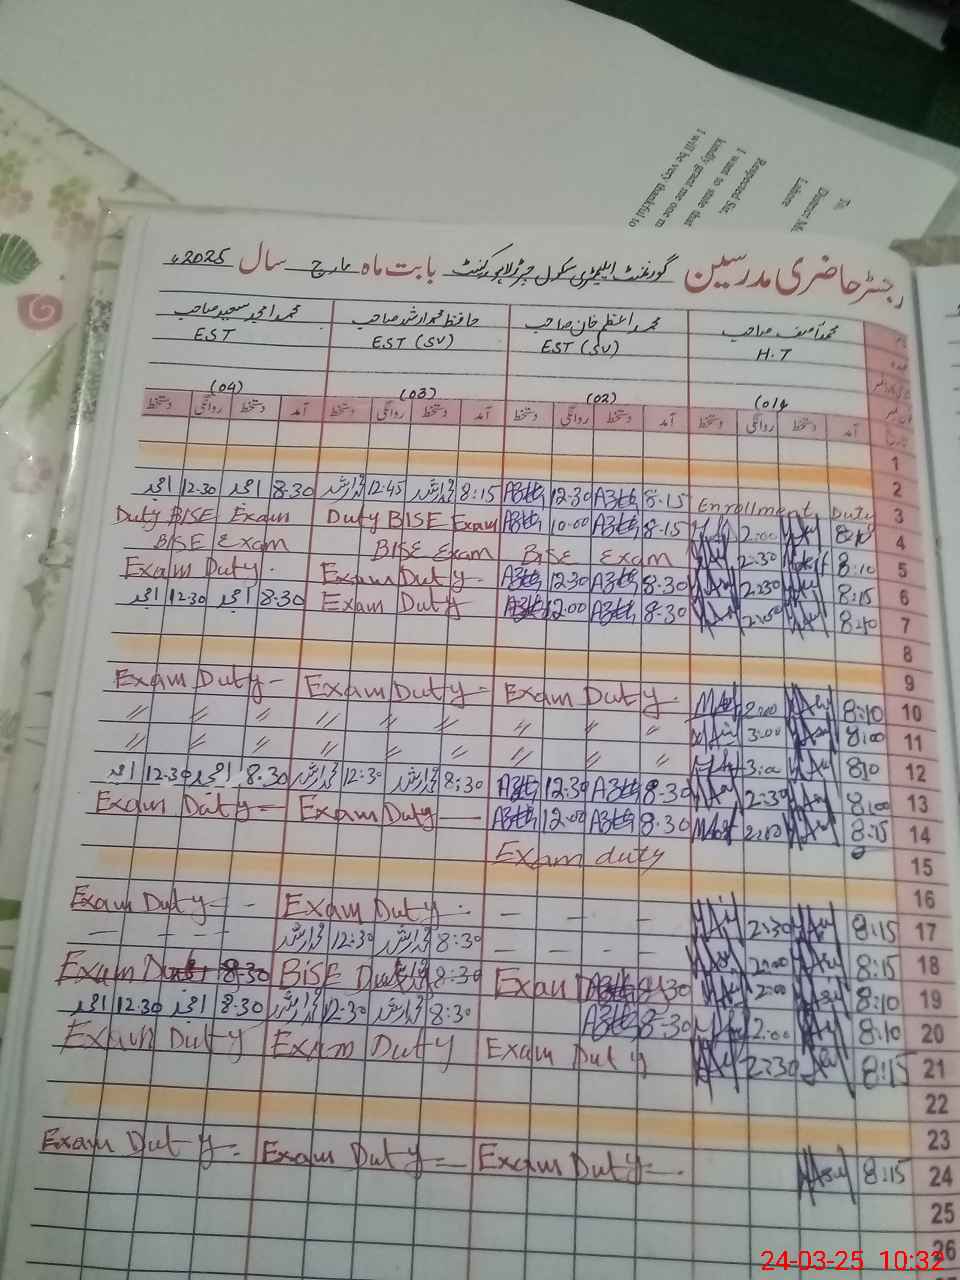 To,
District M
Lahore
Respected Sir,
I want to state that
kindly grant me one m
I will be very thankful to
رجسٹر حاضری مدرسین گورنمنٹ ایلیمنٹری سکول لاہور کینٹ بابت ماہ مارچ سال 2025ء
محمد آصف صاحب محمد اعظم خان صاحب حافظ محمد ارشد صاحب محمد امجد سعید صاحب
H.T EST (SV) EST (SV) EST
(01) (02) (03) (04)
تاریخ آمد دستخط روانگی دستخط آمد دستخط روانگی دستخط آمد دستخط روانگی دستخط آمد دستخط روانگی دستخط
1
2
امجد 12-30 امجد 8-30 ارشد 12:45 ارشد 8:15 12-30 8-15 Enrollment Duty 3
Duty BISE Exam Duty BISE Exam 10-00 8-15 2:00 8:10 4
BISE Exam BISE Exam BISE Exam 2:30 8:10 5
Exam Duty. Exam Duty - 12-30 8-30 2:30 8:15 6
امجد 12-30 امجد 8-30 Exam Duty 12:00 8-30 8:10 7
8
9
Exam Duty - Exam Duty - Exam Duty. 2:00 8:10 10
〃 〃 〃 〃 〃 〃 〃 〃 〃 3:00 8:00 11
〃 〃 〃 〃 〃 〃 〃 〃 〃 8:10 12
امجد 12-30 امجد 8-30 ارشد 12:30 ارشد 8:30 12-30 8-30 2:30 8:00 13
Exam Duty - Exam Duty - 12:00 8-30 8:15 14
Exam duty 15
16
Exam Duty - - Exam Duty - - - - 2:30 8:15 17
- - - - ارشد 12:30 ارشد 8:30 - - - 2:00 8:15 18
Exam 8-30 BISE 8:30 Exam 8-30 2:00 8:10 19
امجد 12-30 امجد 8-30 ارشد 12:30 ارشد 8:30 8-30 2:00 8:10 20
Exam Duty Exam Duty Exam Duty 2:30 8:15 21
22
23
Exam Duty - Exam Duty - Exam Duty - 8:15 24
25
26
24-03-25 10:32